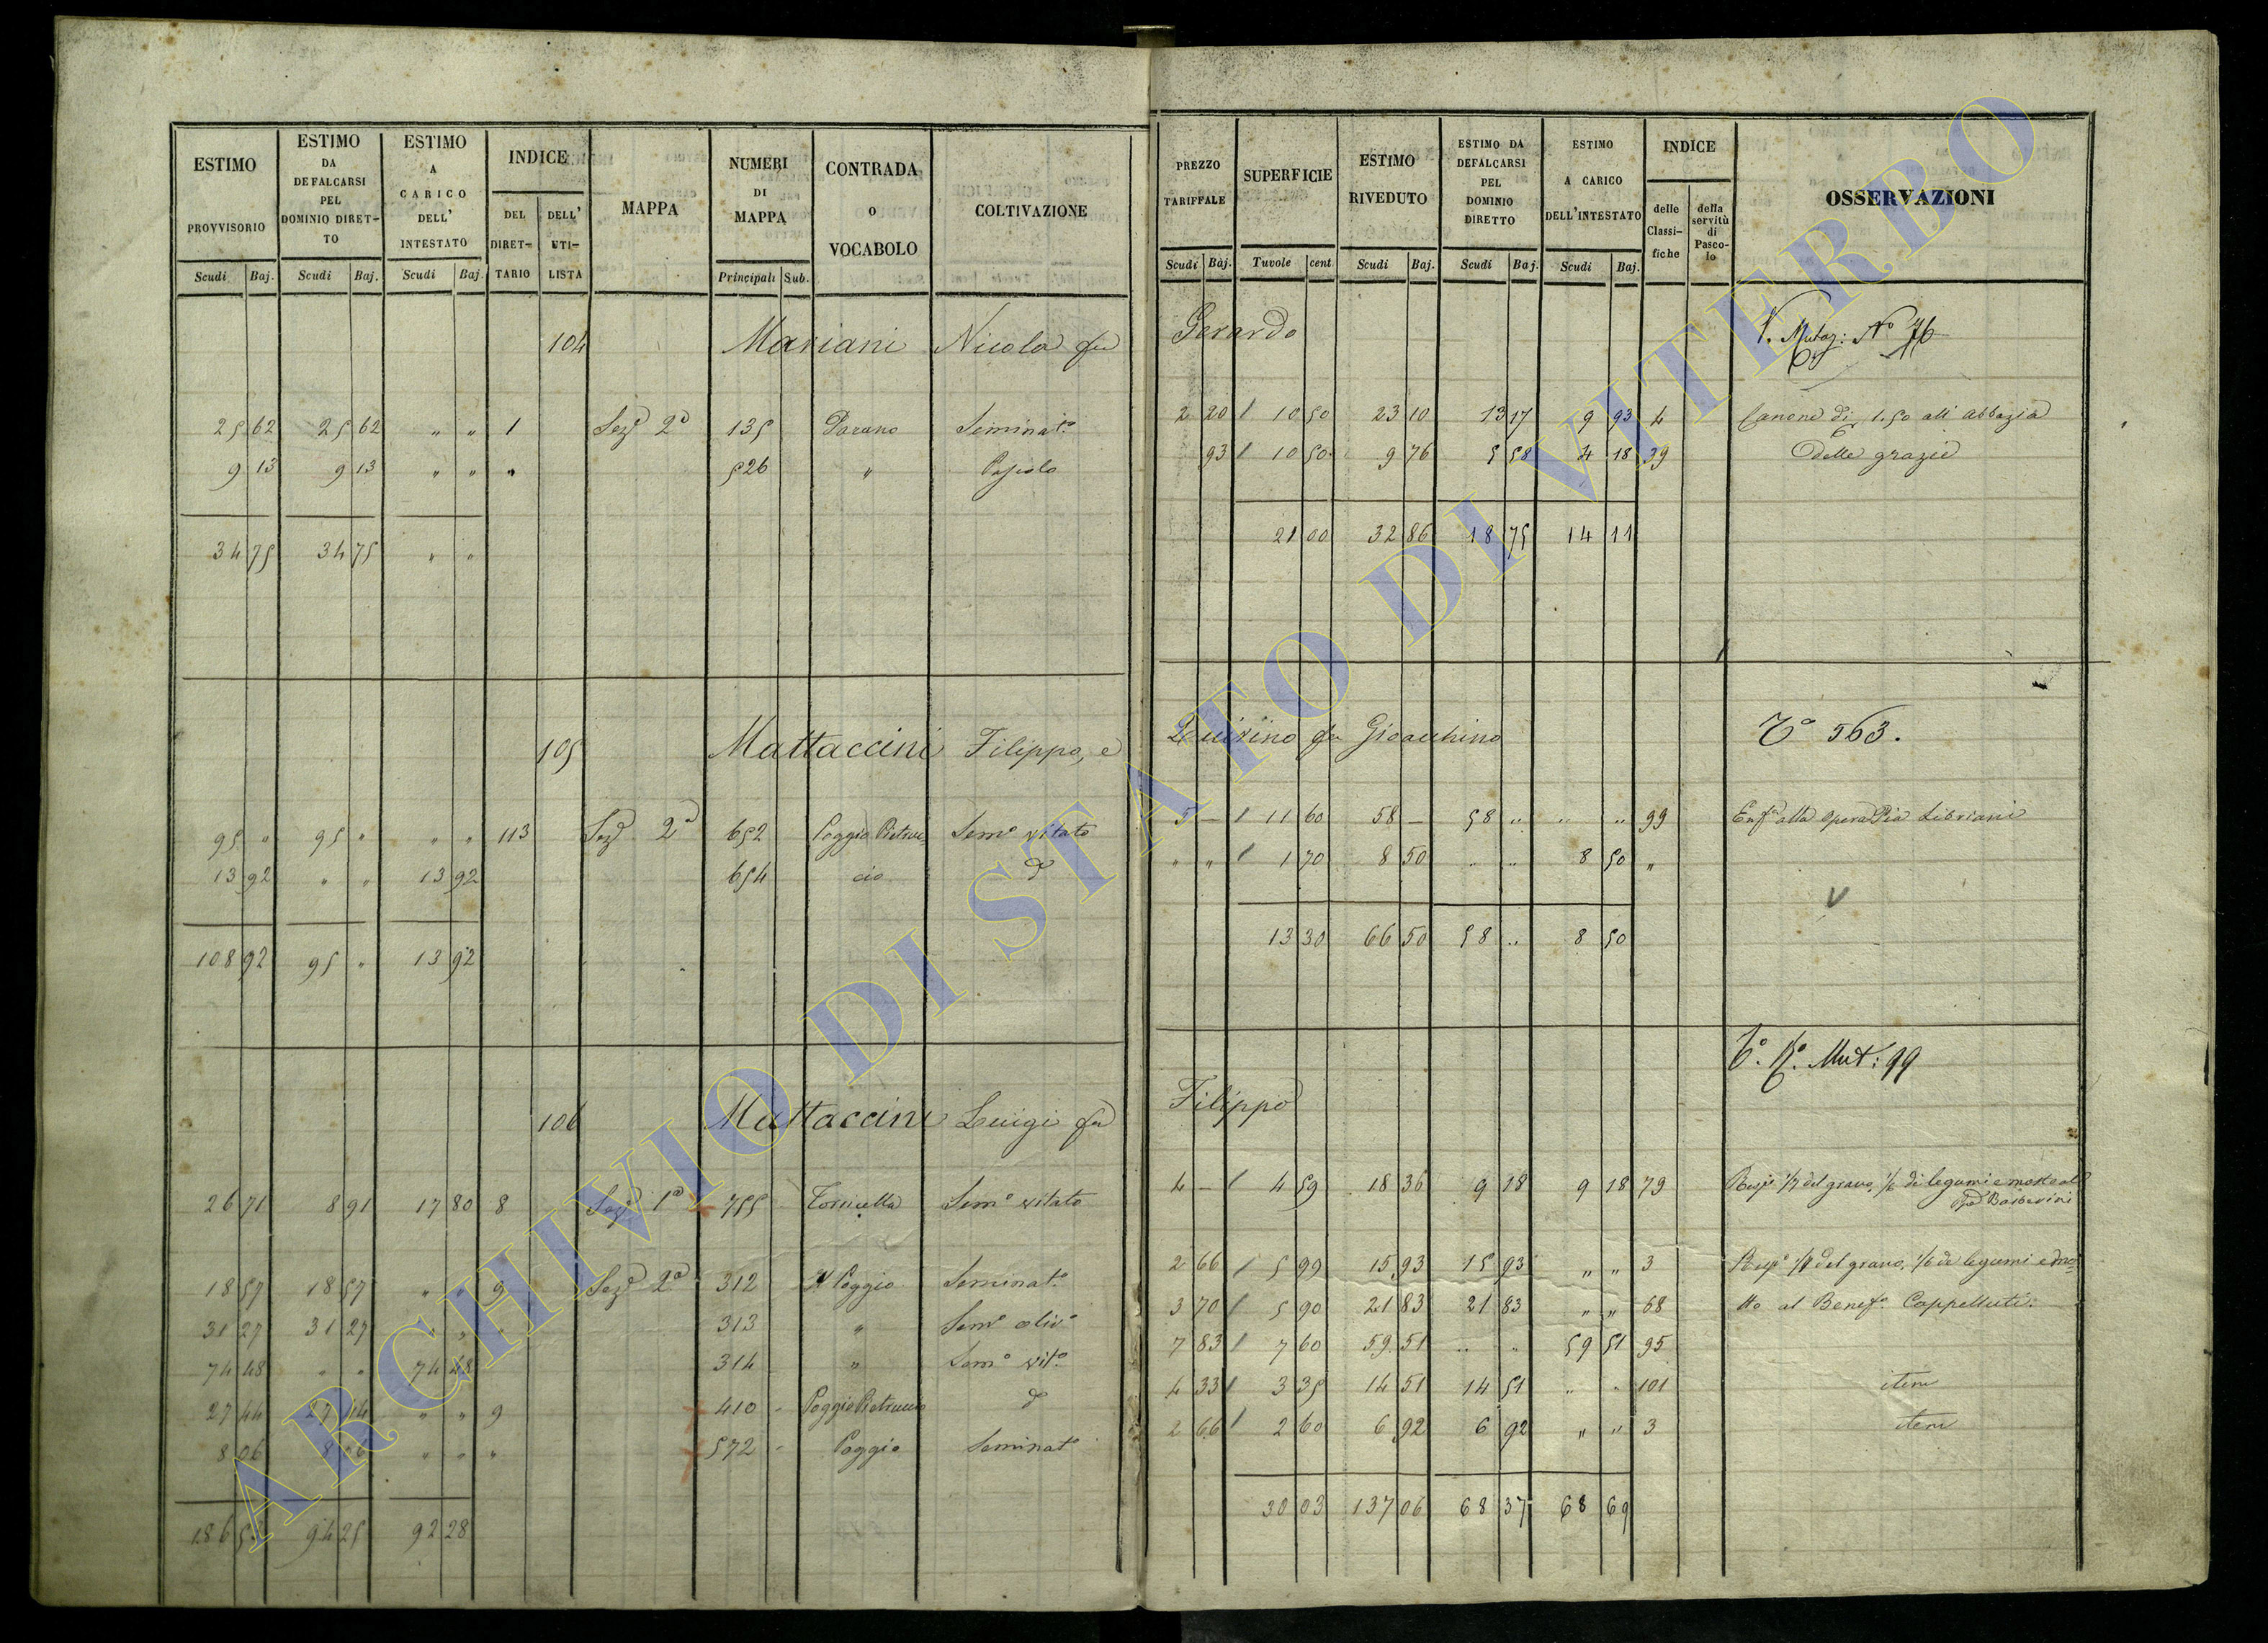 ESTIMO PROVVISORIO Scudi Baj. ESTIMO DA DEFALCARSI PEL DOMINIO DIRETTO Scudi Baj. ESTIMO A CARICO DELL' INTESTATO Scudi Baj. INDICE DEL DIRETTARIO DELL' UTILISTA MAPPA NUMERI DI MAPPA Principali Sub. CONTRADA O VOCABOLO COLTIVAZIONE
104 Mariani Nicola fu
25 62 25 62 " " 1 Sezᵉ 2ᵃ 135 Parano Seminatᵒ
9 13 9 13 " " " 526 " Pascolo
34 75 34 75 " "
105 Mattaccini Filippo, e
95 " 95 " " " 113 Sezᵉ 2ᵃ 652 Poggio Pietruc Semᵒ vitato
13 92 " " 13 92 654 cio dᵒ
108 92 95 " 13 92
106 Mattaccini Luigi fu
26 71 8 91 17 80 8 Sezᵉ 1ᵃ 755 Torricella Semᵒ vitato
18 57 18 57 " " 9 Sezᵉ 2ᵃ 312 Il Poggio Seminatᵒ
31 27 31 27 " " 313 " Semᵒ olivᵒ
74 48 " " 74 48 314 " Semᵒ vitᵒ
27 44 27 44 " " 9 410 Poggio Pietruccio dᵒ
8 06 8 06 " " " 572 Poggio Seminatᵒ
186 53 94 25 92 28
PREZZO TARIFFALE Scudi Baj. SUPERFICIE Tavole cent ESTIMO RIVEDUTO Scudi Baj. ESTIMO DA DEFALCARSI PEL DOMINIO DIRETTO Scudi Baj. ESTIMO A CARICO DELL'INTESTATO Scudi Baj. INDICE delle Classifiche della servitù di Pascolo OSSERVAZIONI
Gerardo V. Mutaz: Nᵒ 76
2 20 10 50 23 10 13 17 9 93 4 Canone di 1.50 all' abbazia
93 10 50 9 76 5 58 4 18 39 delle grazie
21 00 32 86 18 75 14 11
Quirino fu Gioacchino Tᵒ 563.
5 — 11 60 58 — 58 " " " 99 Enfᵃ alla Opera Pia Libriani
" " 1 70 8 50 " " 8 50 "
V
13 30 66 50 58 " 8 50
Mut: 99
Filippo
4 — 4 59 18 36 9 18 9 18 79 Rispᵃ 1/7 del grano, 1/6 di legumi e mosto al
Barberini
2 66 5 99 15 93 15 93 " " 3 Rispᵃ 1/7 del grano, 1/6 di legumi e mo=
3 70 5 90 21 83 21 83 " " 68 sto al Benefᵒ Cappelluti.
7 83 7 60 59 51 " " 59 51 95
4 33 3 35 14 51 14 51 " " 101 item
2 66 2 60 6 92 6 92 " " 3 item
30 03 137 06 68 37 68 69
ARCHIVIO DI STATO DI VITERBO